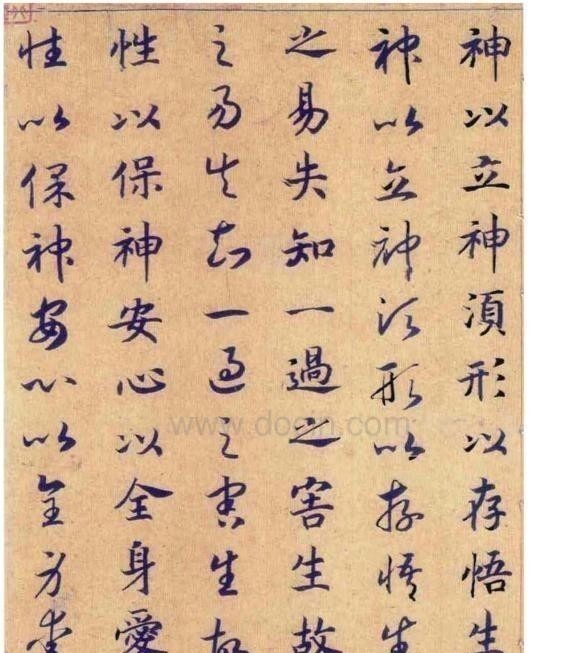 神以立神須形以存悟生
神以立神須形以存悟生
之易失知一過之害生故
之易失知一過之害生故
性以保神安心以全身愛
性以保神安心以全身愛
www.docin.com